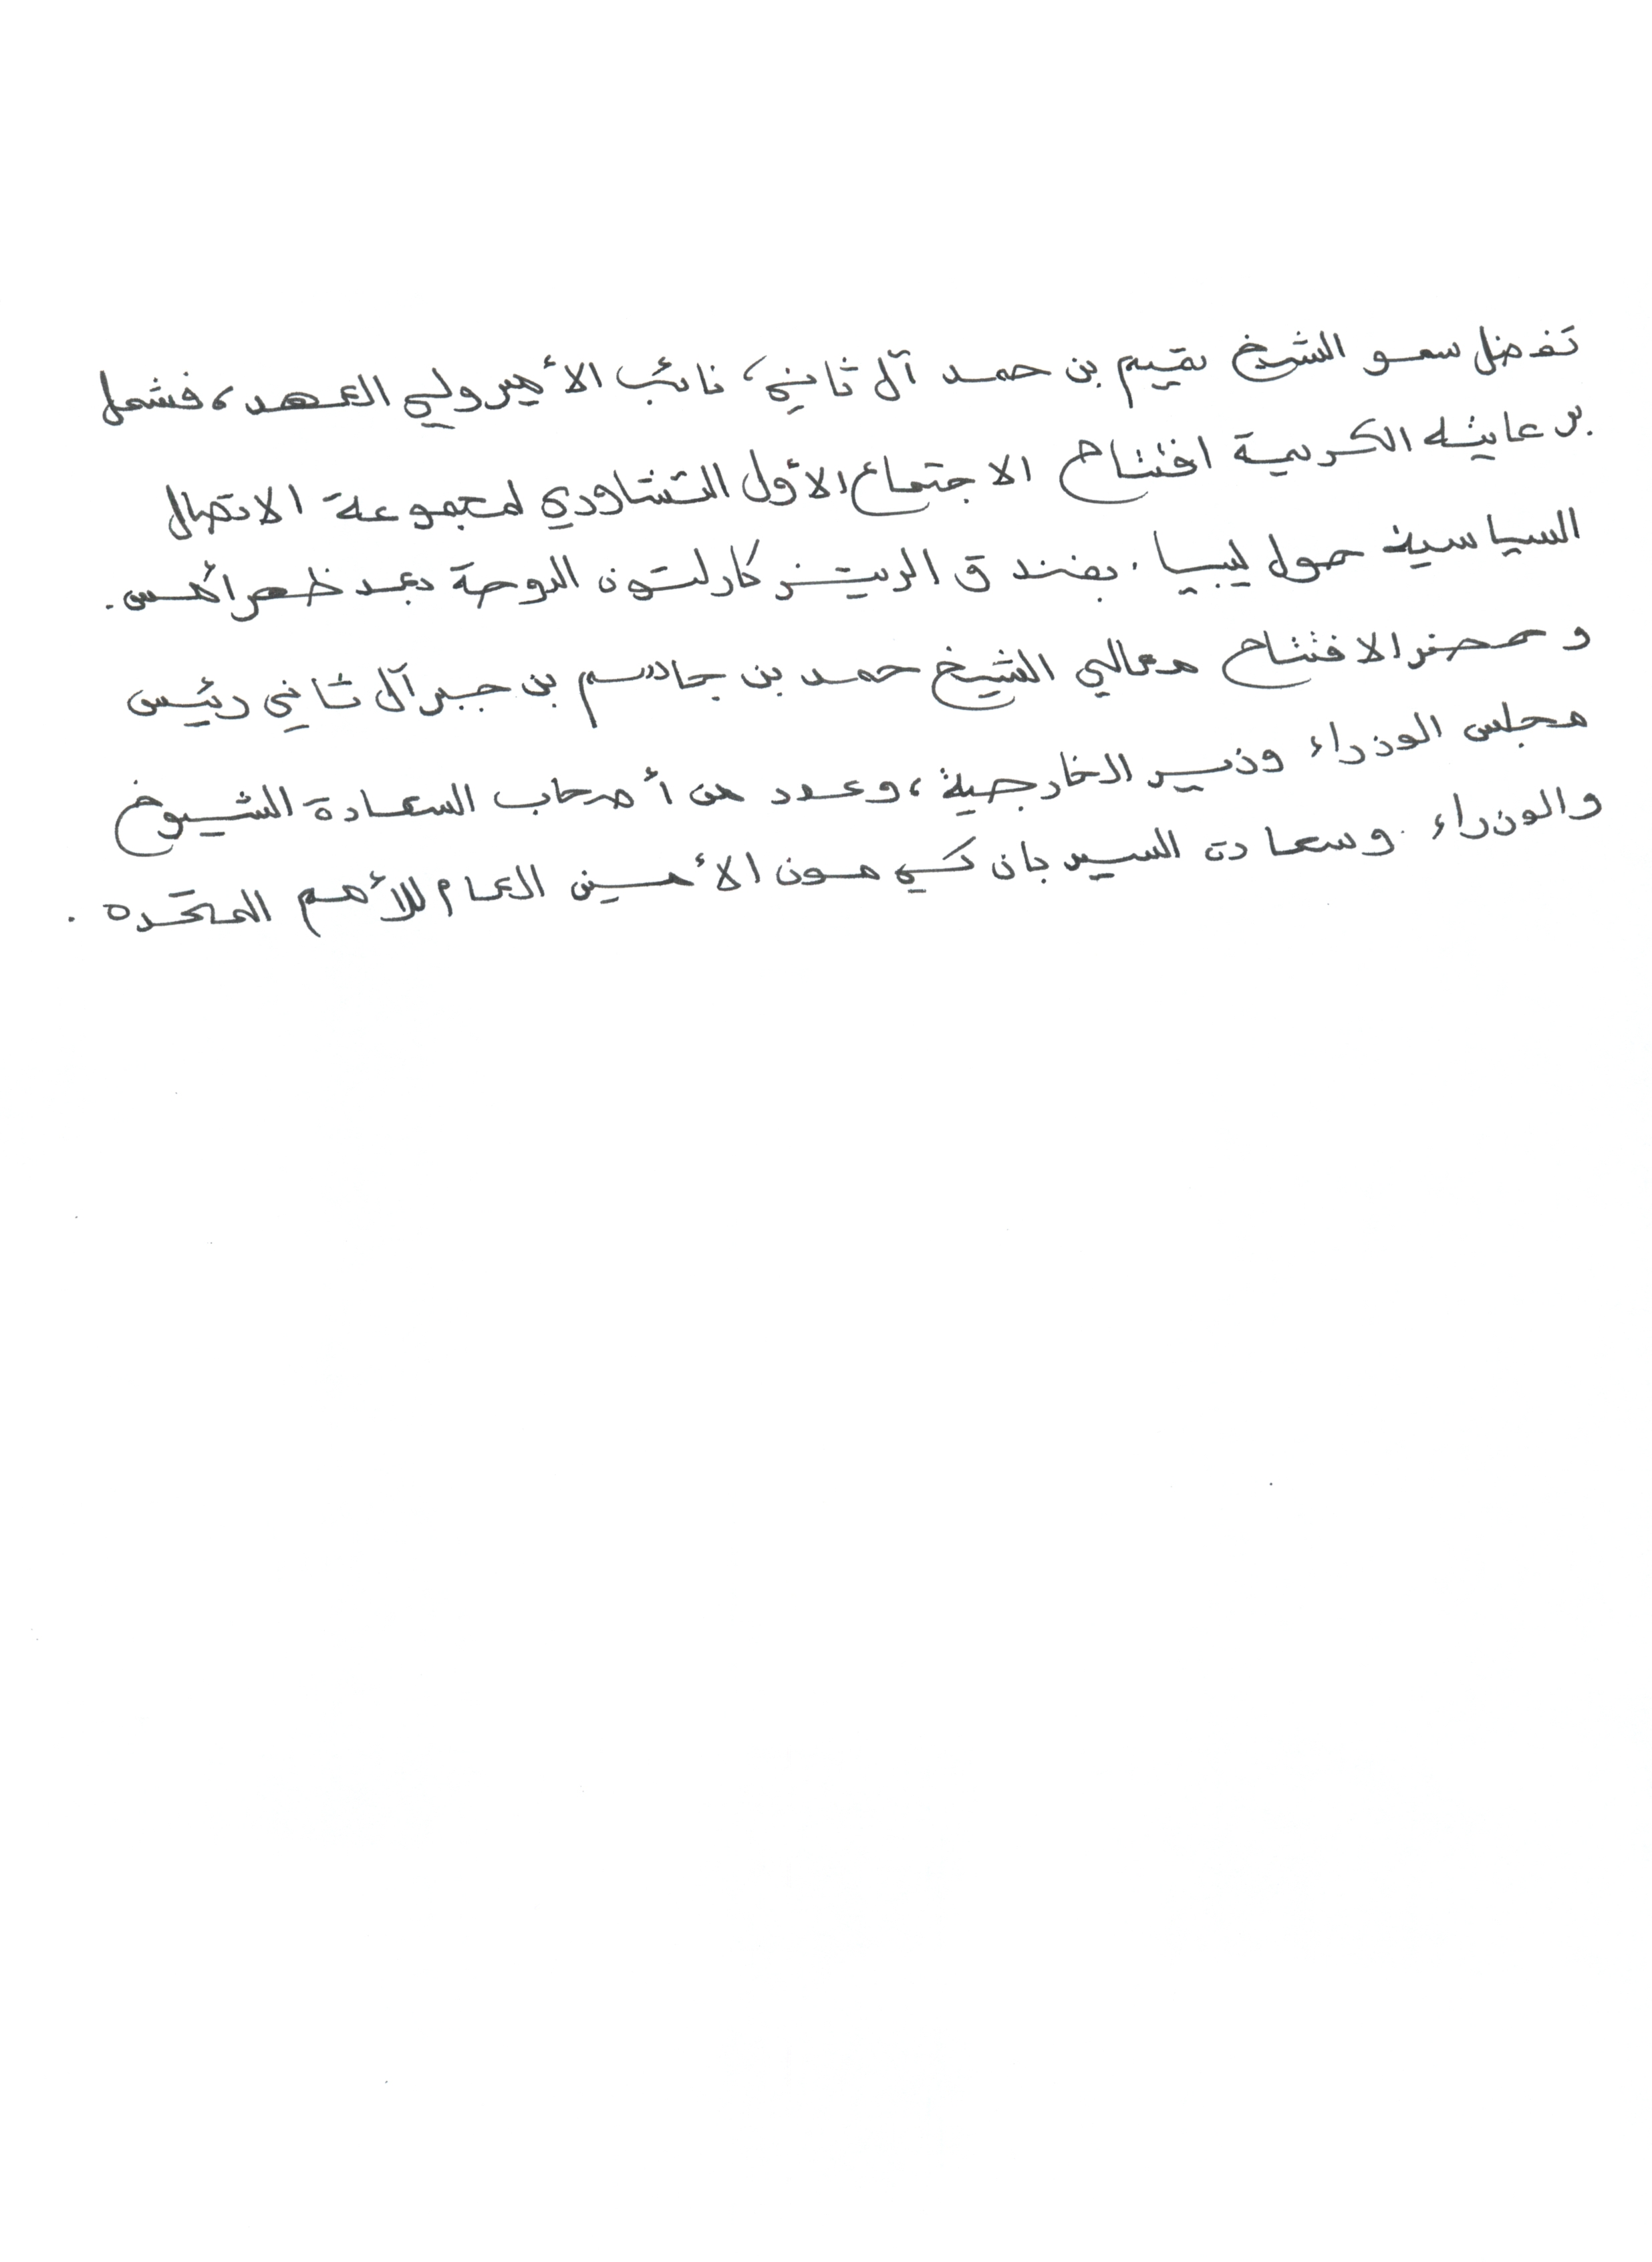 تفضل سمو الشيخ تميم بن حمد آل ثاني، نائب الأمير ولي العهد، فشمل
برعايته الكريمة افتتاح الاجتماع الأول التشاوري لمجموعة الاتصال
السياسية حول ليبيا. بفندق الريتز كارلتون الدوحة بعد ظهر أمس.
وحضر الافتتاح معالي الشيخ حمد بن جاسم بن جبر آل ثاني رئيس
مجلس الوزراء وزير الخارجية، وعدد من أصحاب السعادة الشيوخ
والوزراء. وسعادة السيد بان كي مون الأمين العام للأمم المتحده.